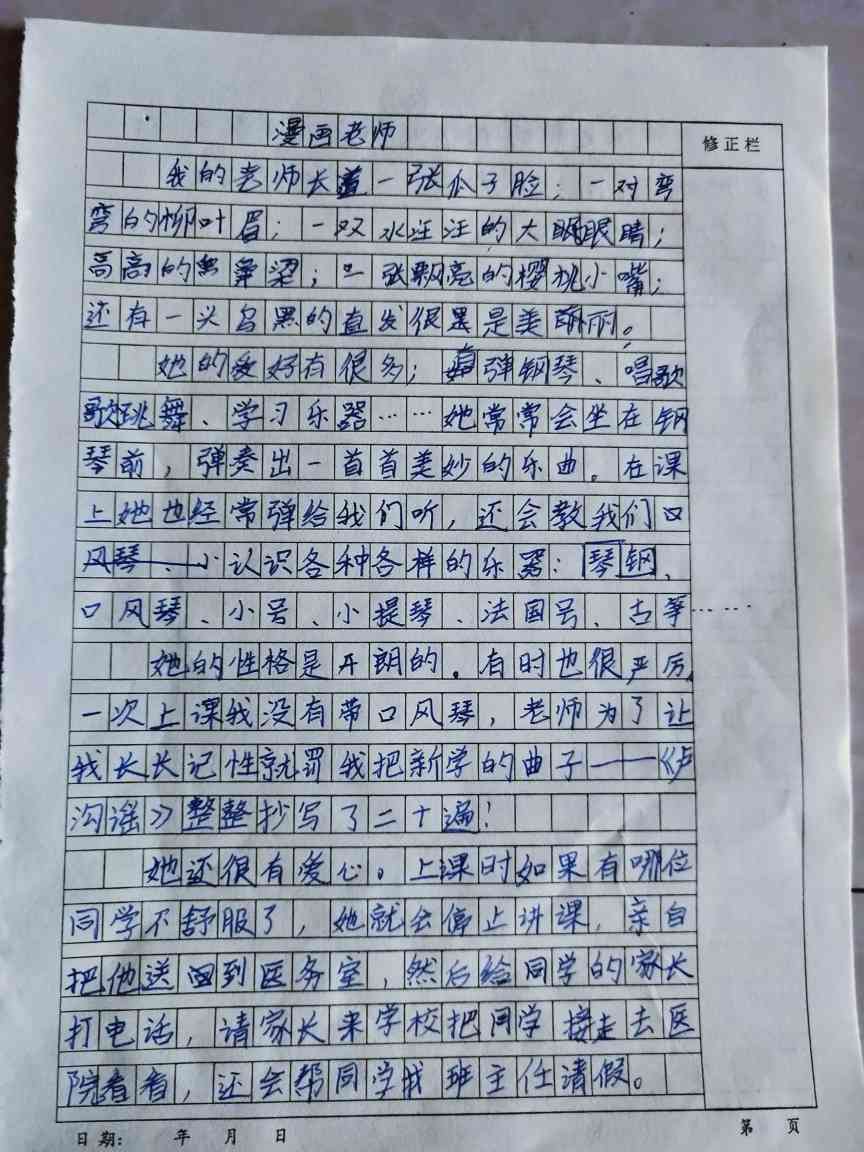 漫画老师
修正栏
我的老师长着一张瓜子脸；一对弯
弯的柳叶眉；一双水汪汪的大眼睛；
高高的鼻梁；一张飘亮的樱桃小嘴；
还有一头乌黑的直发很是美丽。
她的爱好有很多；弹钢琴、唱歌
跳舞、学习乐器……她常常会坐在钢
琴前，弹奏出一首首美妙的乐曲。在课
上她也经常弹给我们听，还会教我们
认识各种各样的乐器：琴钢、
口风琴、小号、小提琴、法国号、古筝……
她的性格是开朗的。有时也很严厉，
一次上课我没有带口风琴，老师为了让
我长长记性就罚我把新学的曲子——《泸
沟谣》整整抄写了二十遍！
她还很有爱心。上课时如果有哪位
同学不舒服了，她就会停止讲课，亲自
把他送到医务室，然后给同学的家长
打电话，请家长来学校把同学接走去医
院看看，还会帮同学找班主任请假。
日期： 年 月 日
第 页